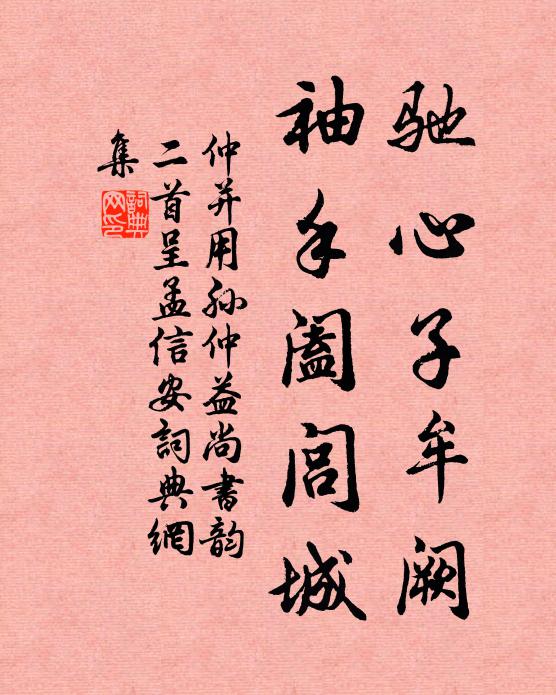 驰心子牟阙
袖手阖闾城
仲并用孙仲益尚書韵
二首呈孟信安詞典網
集
詞典
网印